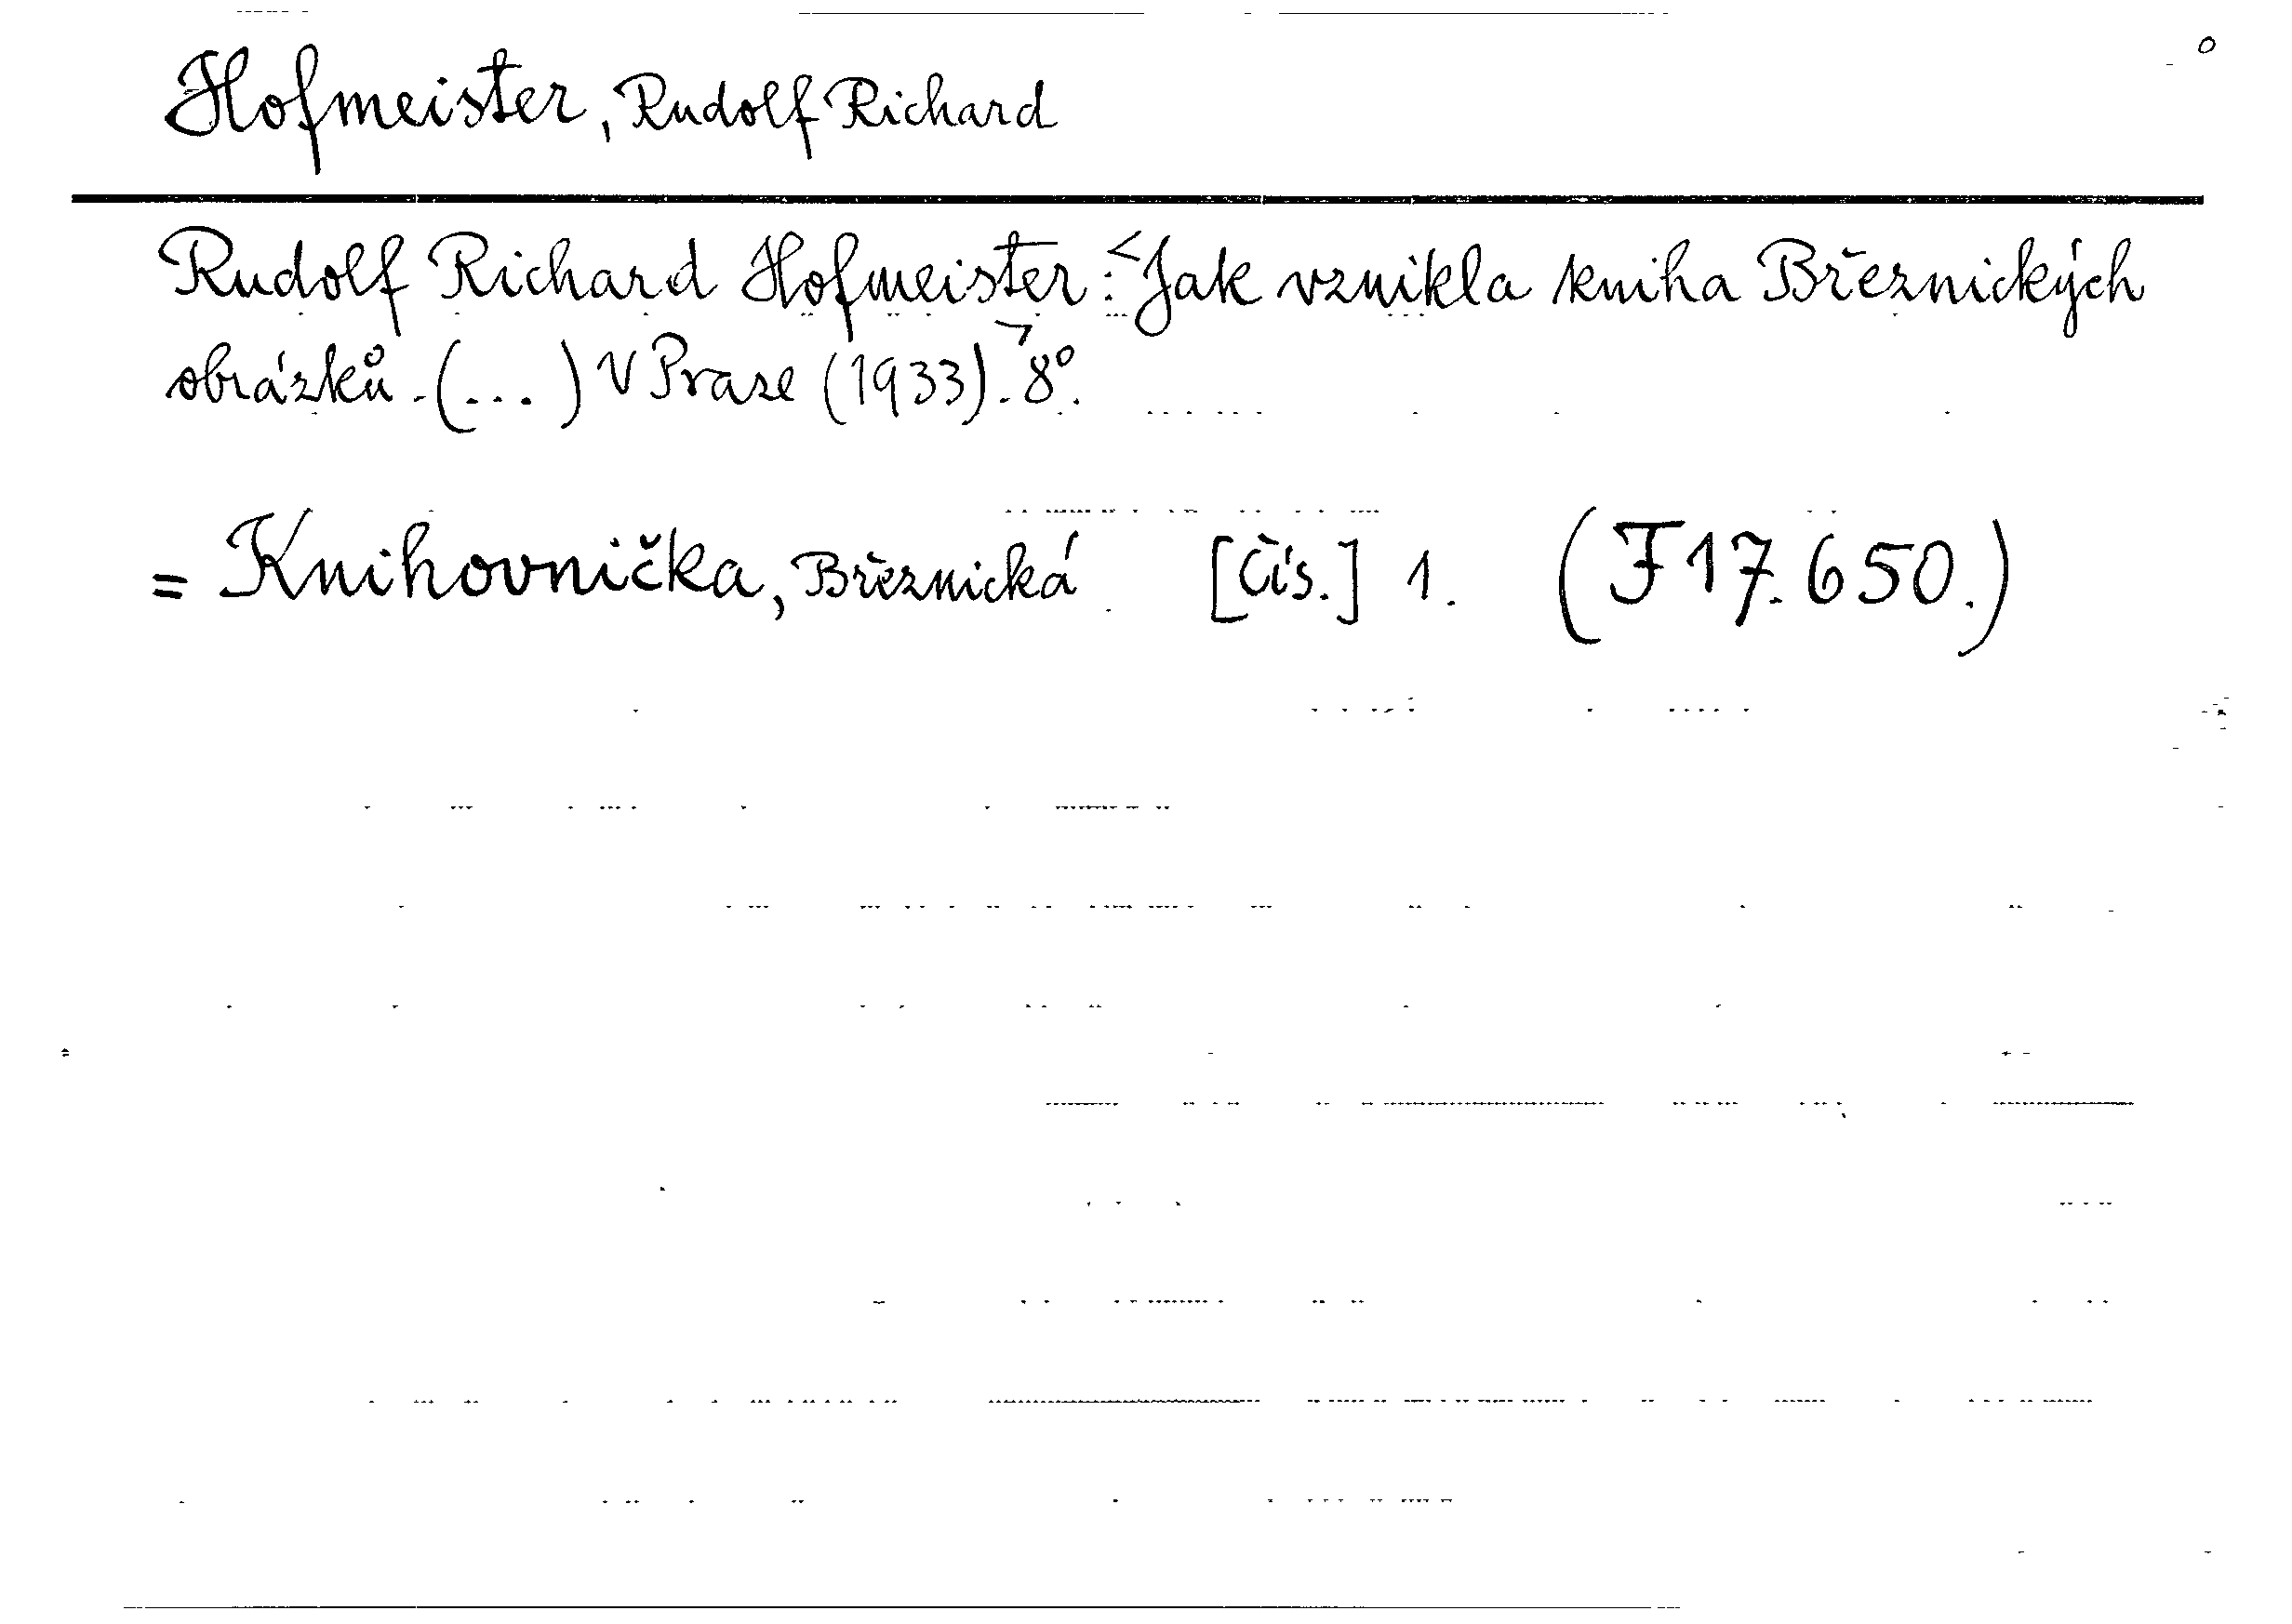 Hofmeister, Rudolf Richard
Rudolf Richard Hofmeister: <Jak vznikla kniha Březnických
obrázků.(...) V Praze (1933).> 8°.
= Knihovnička, Březnická [Čís.] 1. (F 17.650.)